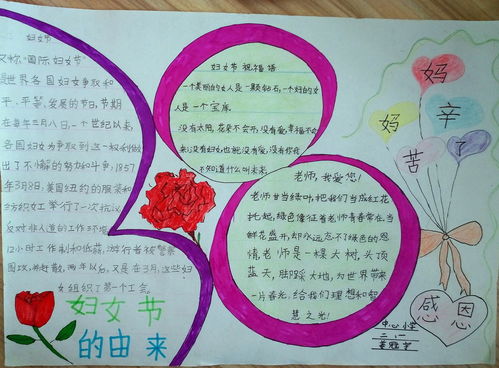 妇女节
又称"国际妇女节"
是世界各国妇女争取和
平、平等、发展的节日,节期
在每年三月八日,一个世纪以来,
各国妇女为争取到这一权利做
出了不懈的努力和斗争,1857
年3月8日,美国纽约的服装和
纺织女工举行了一次抗议,
反对非人道的工作环境,
12小时工作制和低薪,游行者被警察
围攻,并赶散,两年以后,又是在3月,这些妇
女组织了第一个工会,
妇女节
的由来
妇女节祝福语
一个美丽的女人是一颗钻石,一个好的女
人是一个宝库
没有太阳,花朵不会开,没有爱,幸福不会
来;没有妇女也就没有爱,没有你我
不知道什么叫未来,
老师,我爱您!
老师甘当绿叶,把我们当成红花
托起,绿色像征着老师青春常在,当
鲜花盛开,却永远忘不了绿色的恩
情,老师是一棵大树,头顶
蓝天,脚踩大地,为世界带来
一片春光,给我们理想和智
慧之光!
妈
妈
辛
苦
了
感恩
中心小学
二、一